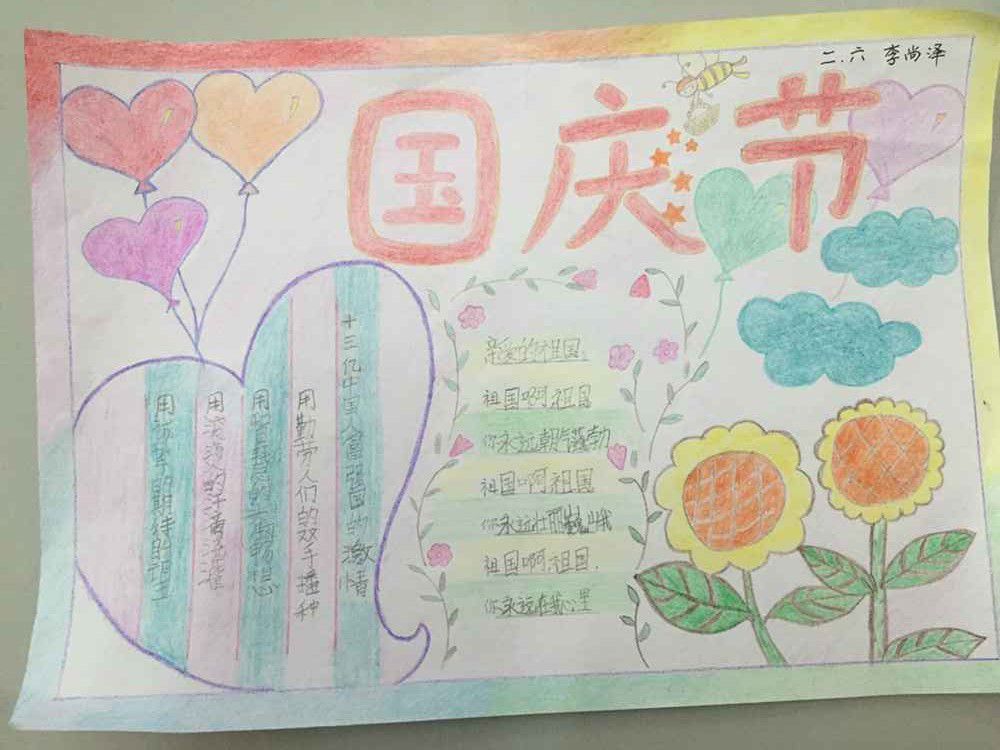 二.六 李尚泽
国庆节
十三亿中国人富强国的激情
用勤劳人们的双手播种
用智慧的
用滚烫的汗滴浇灌
用
的期待
亲爱的祖国
祖国啊祖国
你永远朝气蓬勃
祖国啊祖国
你永远壮丽
祖国啊祖国.
你永远在我心里